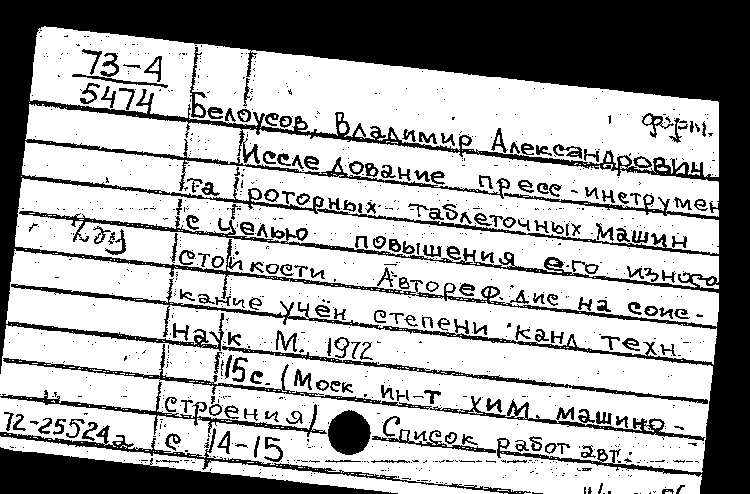 73-4
5474
фурт.
Белоусов, Владимир Александрович.
Исследование пресс-инструмен
та роторных таблеточных машин
с целью повышения его износо
стойкости. Автореф. дис на соис-
кание учён. степени канд техн.
наук. М., 1972
15 с. (Моск. ин-т хим. машино-
строения)
Список работ авт.:
с 14-15
72-25524а